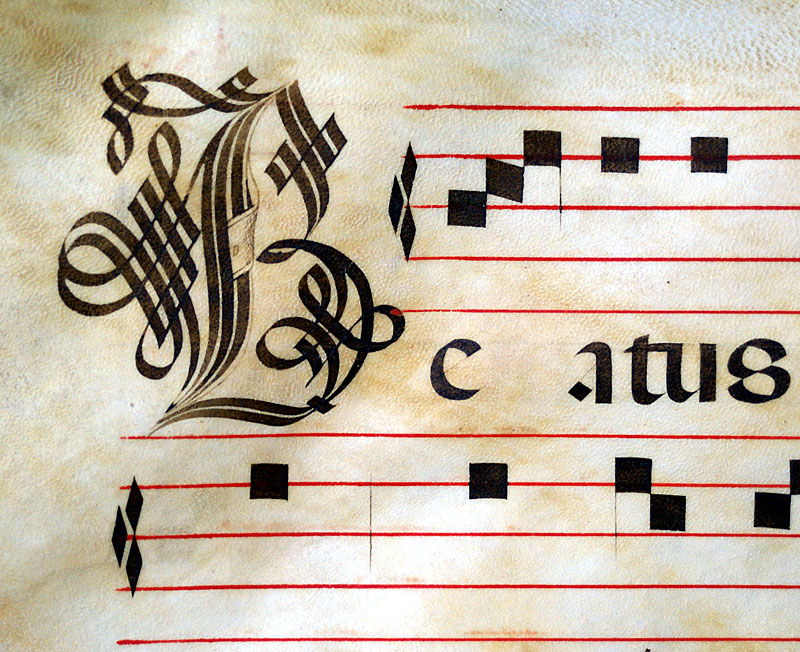 Be atus